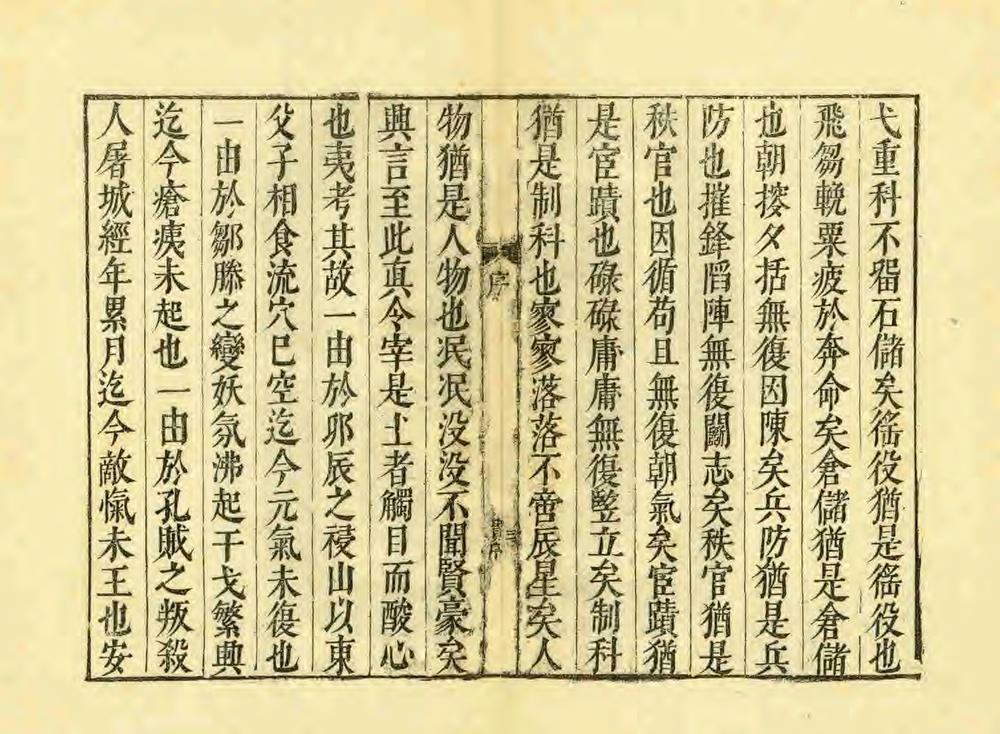 弋重科不畱石儲矣徭役猶是徭役也
飛芻輓粟疲於奔命矣倉儲猶是倉儲
也朝撥夕括無復因陳矣兵防猶是兵
防也摧鋒陷陣無復鬭志矣秩官猶是
秩官也因循苟且無復朝氣矣宦蹟猶
是宦蹟也碌碌庸庸無復豎立矣制科
猶是制科也寥寥落落不啻辰星矣人
序
物猶是人物也泯泯没没不聞賢豪矣
興言至此真令宰是土者觸目而酸心
也夷考其故一由於卯辰之祲山以東
父子相食流穴巳空迄今元氣未復也
一由於鄒滕之變妖氛沸起干戈繁興
迄今瘡痍未起也一由於孔賊之叛殺
人屠城經年累月迄今敵愾未王也安